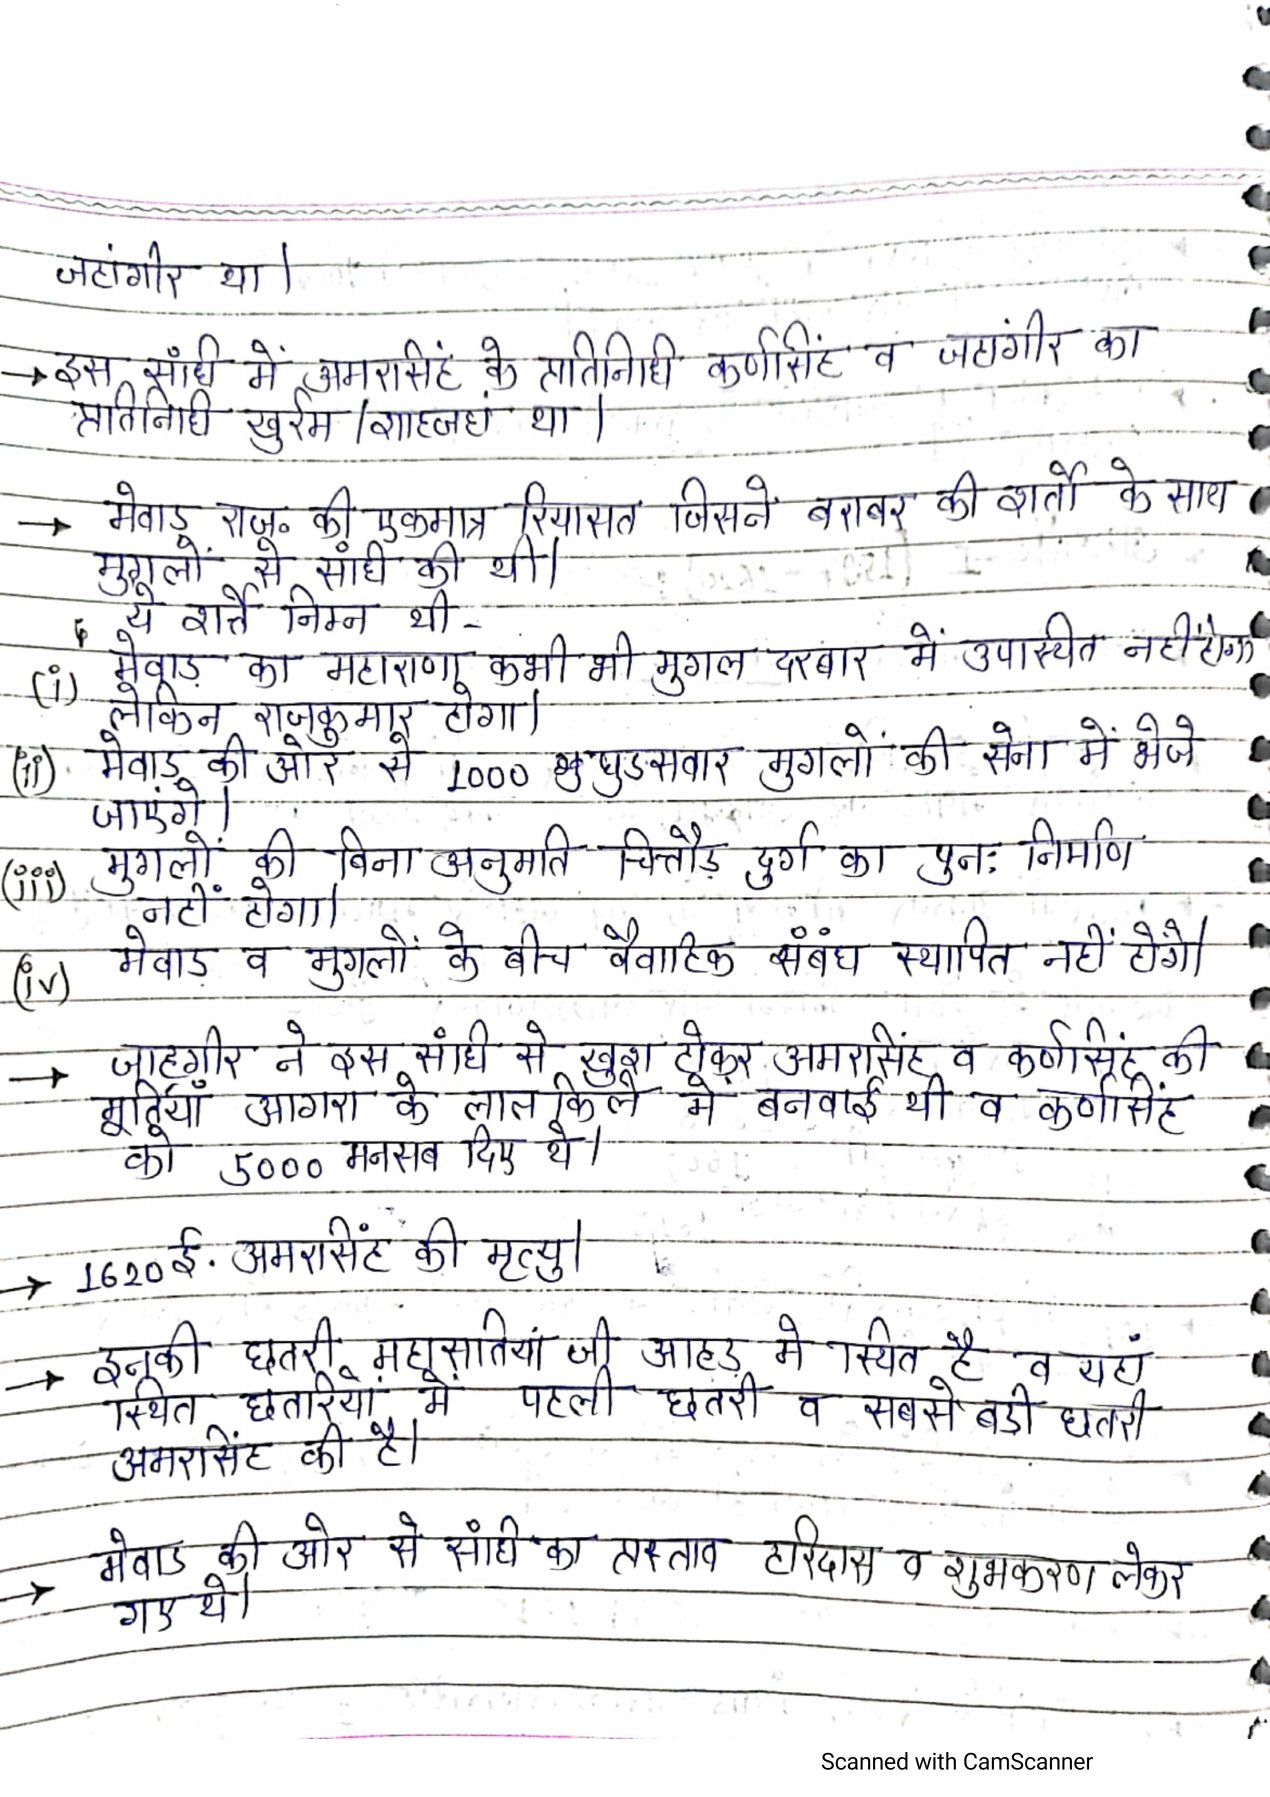 जहांगीर था।
→ इस संधि में अमरसिंह के प्रतिनिधी कर्णसिंह व जहांगीर का
प्रतिनिधी खुर्रम / शाहजहां था।
→ मेवाड़ राज. की एकमात्र रियासत जिसने बराबर की शर्तो के साथ
मुगलों से संधि की थी।
ये शर्तें निम्न थी -
(i) मेवाड़ का महाराणा कभी भी मुगल दरबार में उपस्थित नहीं होगा
लेकिन राजकुमार होगा।
(ii) मेवाड़ की ओर से 1000 घुडसवार मुगलों की सेना में भेजे
जाएंगे।
(iii) मुगलों की बिना अनुमति चित्तौड़ दुर्ग का पुनः निर्माण
नहीं होगा।
(iv) मेवाड़ व मुगलों के बीच वैवाहिक संबंध स्थापित नहीं होगे।
→ जाहगीर ने इस संधि से खुश होकर अमरसिंह व कर्णसिंह की
मूर्तियाँ आगरा के लाल किले मे बनवाई थी व कर्णसिंह
को 5000 मनसब दिए थे।
→ 1620 ई. अमरसिंह की मृत्यु।
→ इनकी छतरी महासतियां जी आहड़ मे स्थित है व यहां
स्थित छतरियों में पहली छतरी व सबसे बडी छतरी
अमरसिंह की है।
→ मेवाड की ओर से संधि का प्रस्ताव हरिदास व शुभकरण लेकर
गए थे।
Scanned with CamScanner